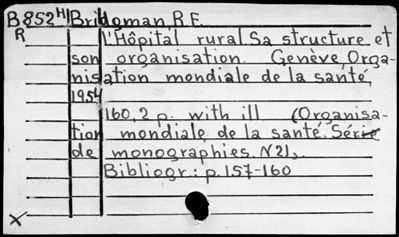 B852H Bridgman R.F.
R l'Hôpital rural Sa structure et
son organisation. Genève, Orga-
nisation mondiale de la santé,
1954
160,2 p. with ill (Organisa-
tion mondiale de la santé. Série
de monographies. N21).
Bibliogr.: p.157-160
X